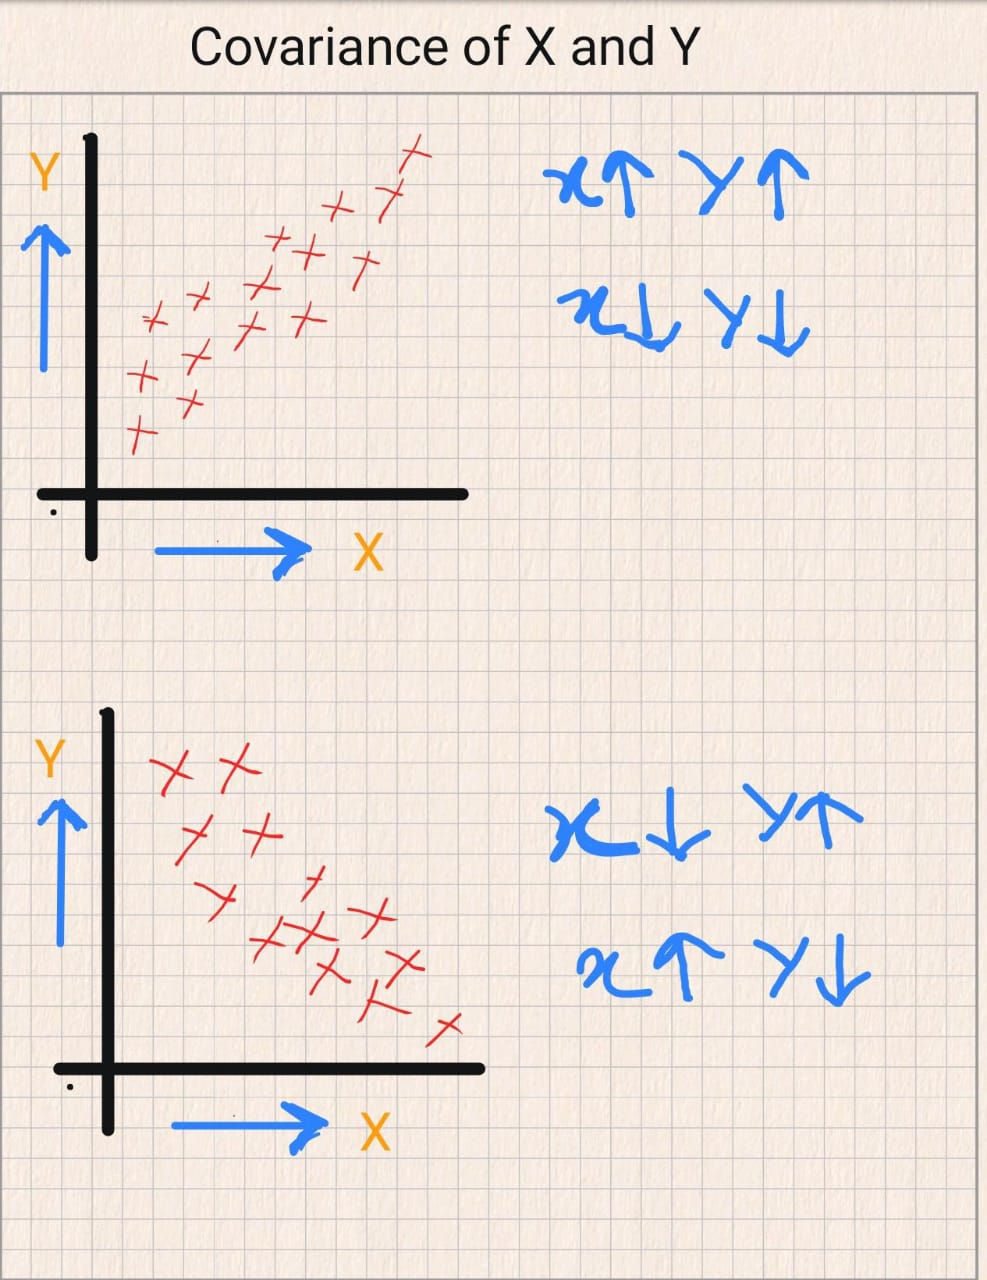 Covariance of X and Y
Y
x↑ Y↑
x↓ Y↓
X
Y
x↓ Y↑
x↑ Y↓
X